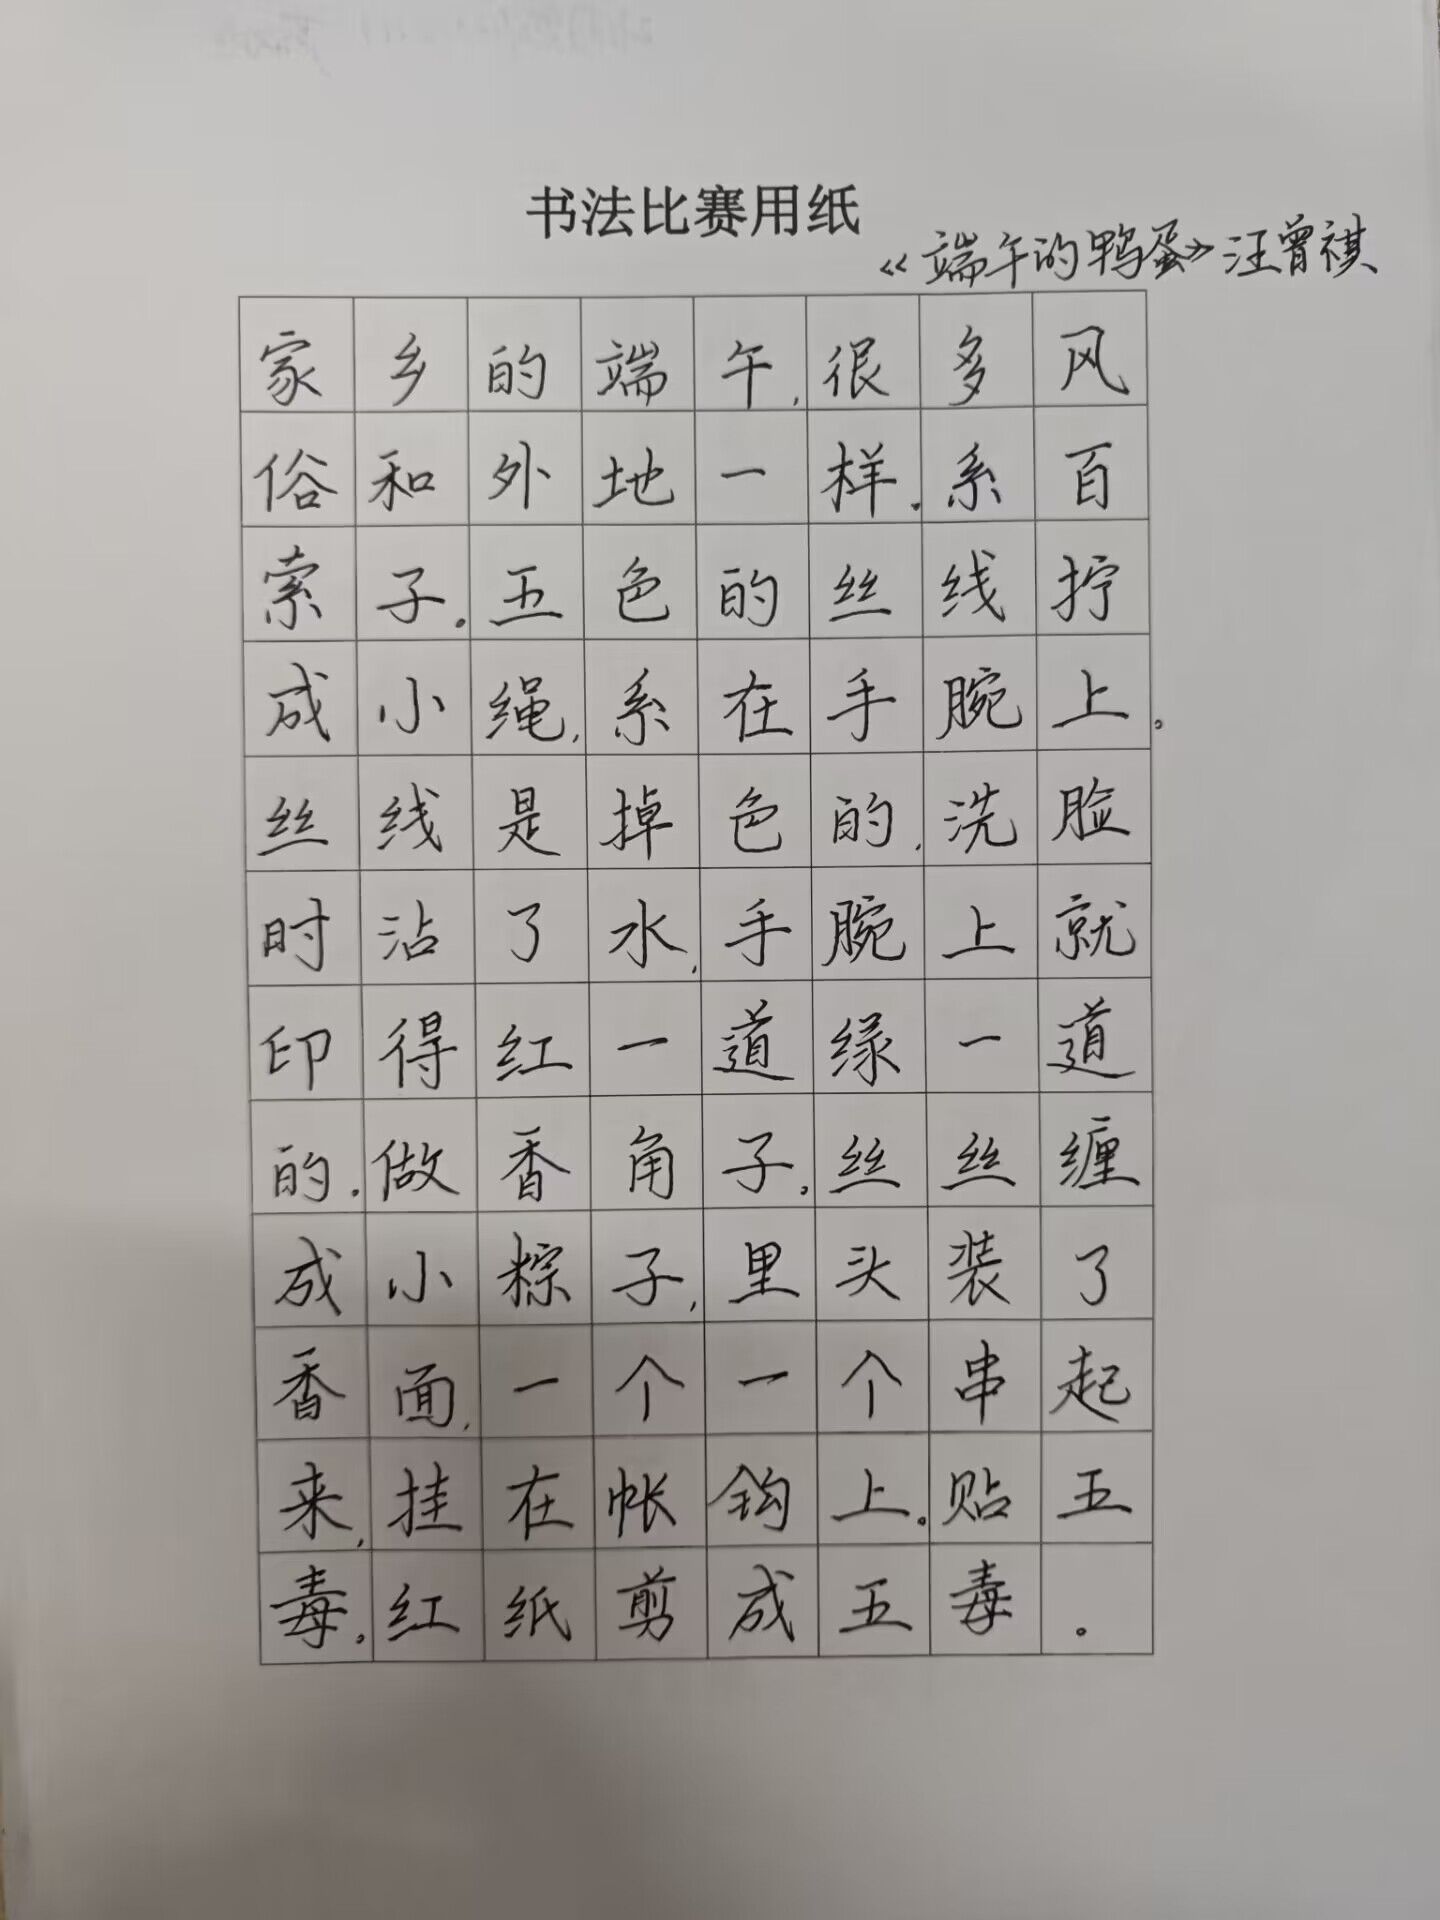 书法比赛用纸
《端午的鸭蛋》汪曾祺
家乡的端午,很多风
俗和外地一样。系百
索子。五色的丝线拧
成小绳,系在手腕上。
丝线是掉色的,洗脸
时沾了水,手腕上就
印得红一道绿一道
的。做香角子。丝丝缠
成小粽子,里头装了
香面,一个一个串起
来,挂在帐钩上。贴五
毒。红纸剪成五毒。